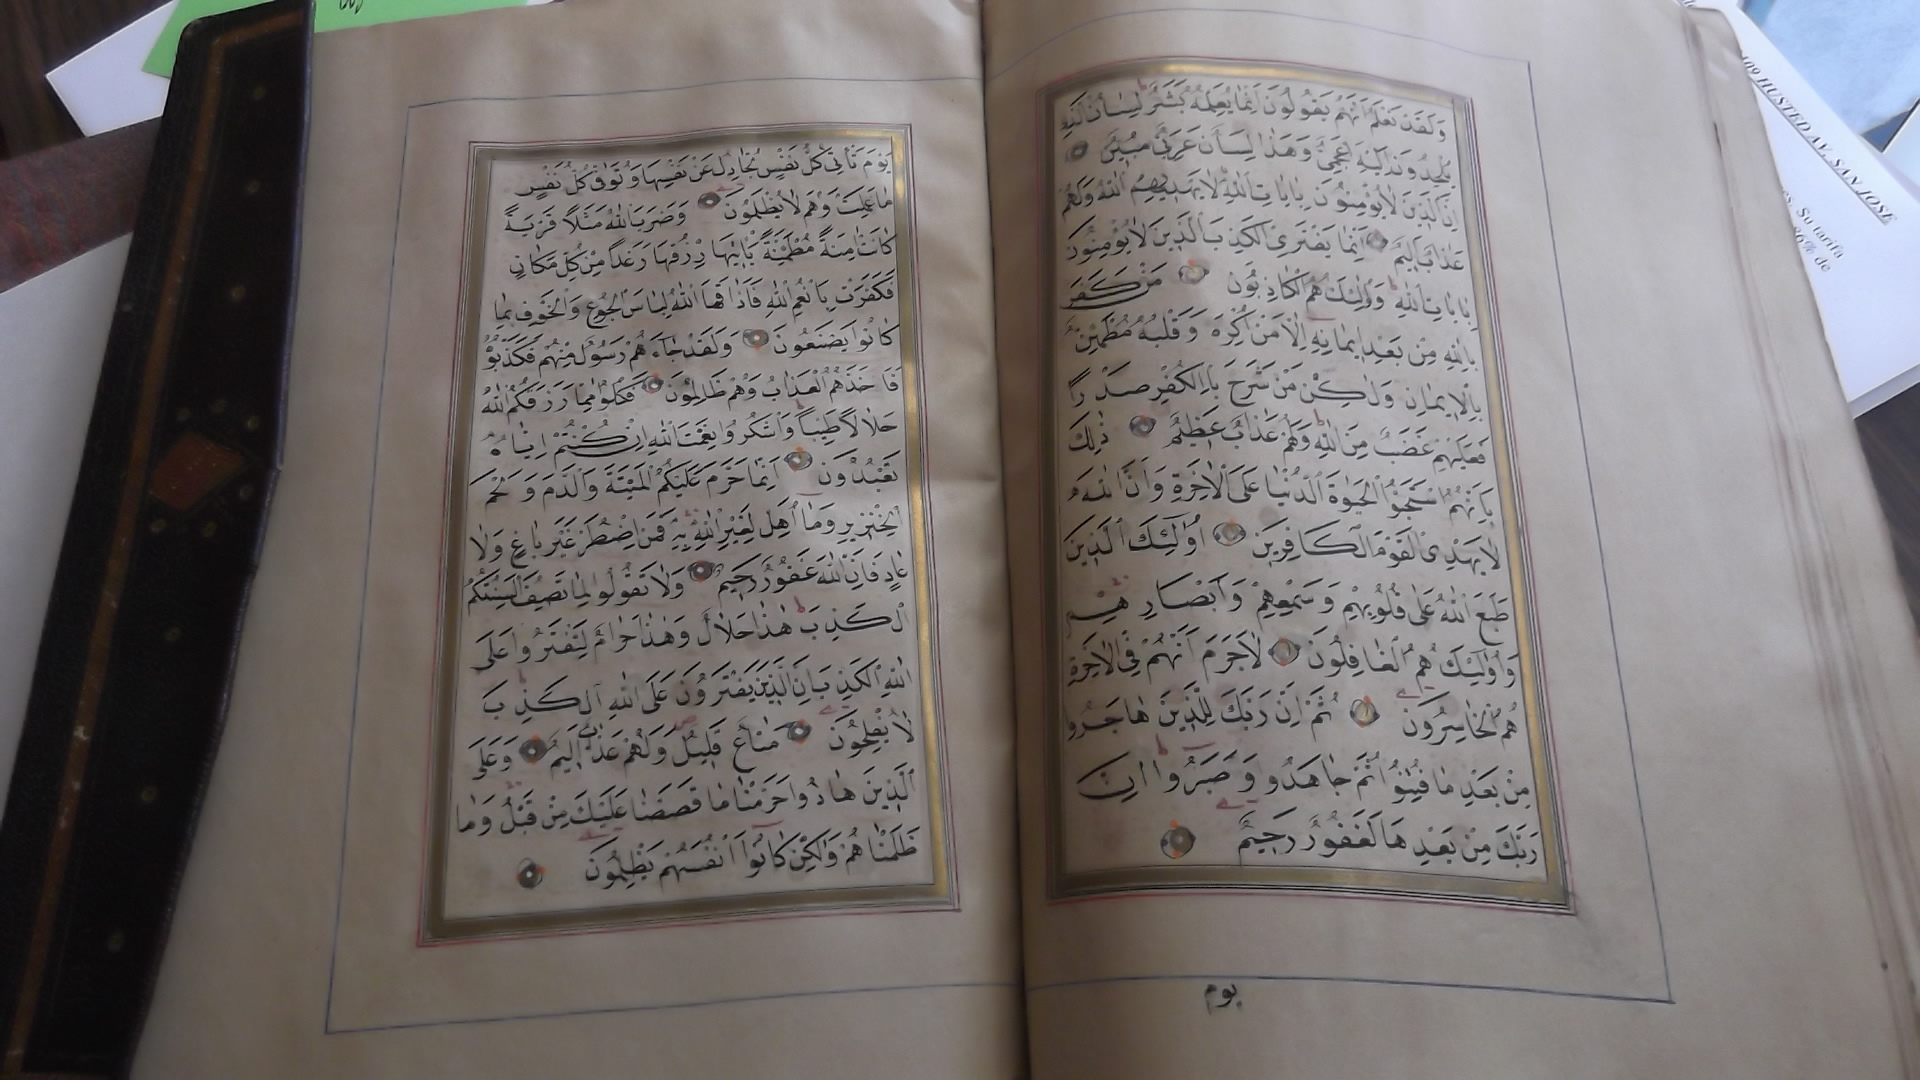 وَلَقَدْ نَعْلَمُ اَنَّهُمْ يَقُولُونَ اِنَّمَا يُعَلِّمُهُ بَشَرٌ لِسَانُ الَّذِى
يُلْحِدُونَ اِلَيْهِ اَعْجَمِىٌّ وَهٰذَا لِسَانٌ عَرَبِىٌّ مُبِينٌ
اِنَّ الَّذِينَ لَا يُؤْمِنُونَ بِاٰيَاتِ اللّٰهِ لَا يَهْدِيهِمُ اللّٰهُ وَلَهُمْ
عَذَابٌ اَلِيمٌ اِنَّمَا يَفْتَرِى الْكَذِبَ الَّذِينَ لَا يُؤْمِنُونَ
بِاٰيَاتِ اللّٰهِ وَاُولٰئِكَ هُمُ الْكَاذِبُونَ مَنْ كَفَرَ
بِاللّٰهِ مِنْ بَعْدِ اِيمَانِهِ اِلَّا مَنْ اُكْرِهَ وَقَلْبُهُ مُطْمَئِنٌّ
بِالْاِيمَانِ وَلٰكِنْ مَنْ شَرَحَ بِالْكُفْرِ صَدْرًا
فَعَلَيْهِمْ غَضَبٌ مِنَ اللّٰهِ وَلَهُمْ عَذَابٌ عَظِيمٌ ذٰلِكَ
بِاَنَّهُمُ اسْتَحَبُّوا الْحَيٰوةَ الدُّنْيَا عَلَى الْاٰخِرَةِ وَاَنَّ اللّٰهَ
لَا يَهْدِى الْقَوْمَ الْكَافِرِينَ اُولٰئِكَ الَّذِينَ
طَبَعَ اللّٰهُ عَلٰى قُلُوبِهِمْ وَسَمْعِهِمْ وَاَبْصَارِهِمْ
وَاُولٰئِكَ هُمُ الْغَافِلُونَ لَا جَرَمَ اَنَّهُمْ فِى الْاٰخِرَةِ
هُمُ الْخَاسِرُونَ ثُمَّ اِنَّ رَبَّكَ لِلَّذِينَ هَاجَرُوا
مِنْ بَعْدِ مَا فُتِنُوا ثُمَّ جَاهَدُو وَصَبَرُوا اِنَّ
رَبَّكَ مِنْ بَعْدِهَا لَغَفُورٌ رَحِيمٌ
يوم
يَوْمَ تَاْتِى كُلُّ نَفْسٍ تُجَادِلُ عَنْ نَفْسِهَا وَتُوَفّٰى كُلُّ نَفْسٍ
مَا عَمِلَتْ وَهُمْ لَا يُظْلَمُونَ وَضَرَبَ اللّٰهُ مَثَلًا قَرْيَةً
كَانَتْ اٰمِنَةً مُطْمَئِنَّةً يَاْتِيهَا رِزْقُهَا رَغَدًا مِنْ كُلِّ مَكَانٍ
فَكَفَرَتْ بِاَنْعُمِ اللّٰهِ فَاَذَاقَهَا اللّٰهُ لِبَاسَ الْجُوعِ وَالْخَوْفِ بِمَا
كَانُوا يَصْنَعُونَ وَلَقَدْ جَاءَهُمْ رَسُولٌ مِنْهُمْ فَكَذَّبُوهُ
فَاَخَذَهُمُ الْعَذَابُ وَهُمْ ظَالِمُونَ فَكُلُوا مِمَّا رَزَقَكُمُ اللّٰهُ
حَلَالًا طَيِّبًا وَاشْكُرُوا نِعْمَتَ اللّٰهِ اِنْ كُنْتُمْ اِيَّاهُ
تَعْبُدُونَ اِنَّمَا حَرَّمَ عَلَيْكُمُ الْمَيْتَةَ وَالدَّمَ وَلَحْمَ
الْخِنْزِيرِ وَمَا اُهِلَّ لِغَيْرِ اللّٰهِ بِهِ فَمَنِ اضْطُرَّ غَيْرَ بَاغٍ وَلَا
عَادٍ فَاِنَّ اللّٰهَ غَفُورٌ رَحِيمٌ وَلَا تَقُولُوا لِمَا تَصِفُ اَلْسِنَتُكُمُ
الْكَذِبَ هٰذَا حَلَالٌ وَهٰذَا حَرَامٌ لِتَفْتَرُوا عَلَى
اللّٰهِ الْكَذِبَ اِنَّ الَّذِينَ يَفْتَرُونَ عَلَى اللّٰهِ الْكَذِبَ
لَا يُفْلِحُونَ مَتَاعٌ قَلِيلٌ وَلَهُمْ عَذَابٌ اَلِيمٌ وَعَلَى
الَّذِينَ هَادُوا حَرَّمْنَا مَا قَصَصْنَا عَلَيْكَ مِنْ قَبْلُ وَمَا
ظَلَمْنَاهُمْ وَلٰكِنْ كَانُوا اَنْفُسَهُمْ يَظْلِمُونَ
109 HUSTED AV. SAN JOSE
Su tarifa
86% de